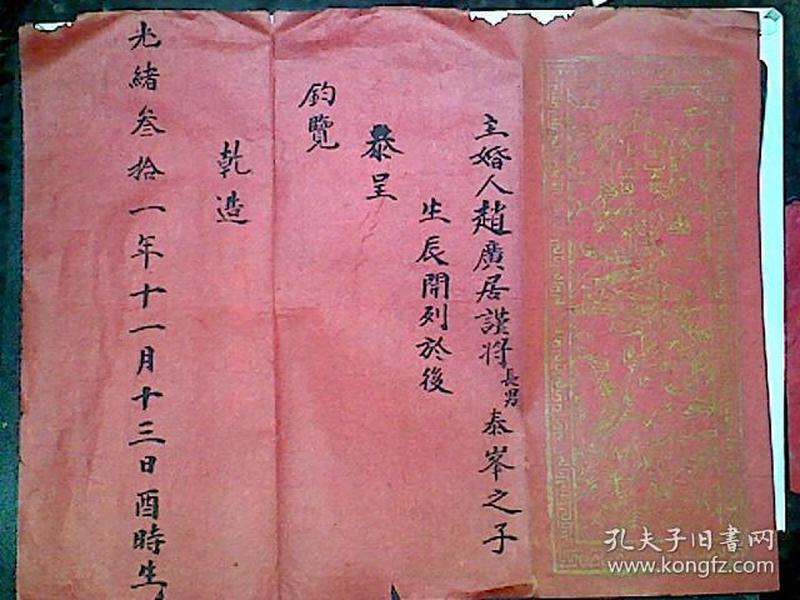 主婚人趙廣居謹將長男泰峯之子
生辰開列於後
恭呈
鈞覽
乾造
光緒叁拾一年十一月十三日酉時生
孔夫子旧书网
www.kongfz.com